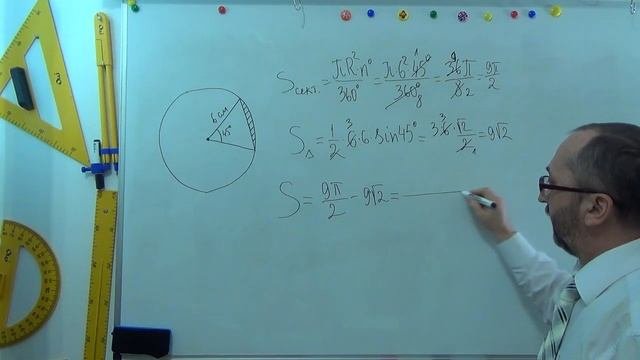 6 см
45°
Sсект. = πR²n° / 360° = π6²·45° 1 / 360° 8 = 9 36π / 8 2 = 9π / 2
S△ = 1/2 · 6 3 · 6 · sin45° = 3 · 6 3 · √2 / 2 1 = 9√2
S = 9π / 2 − 9√2 =